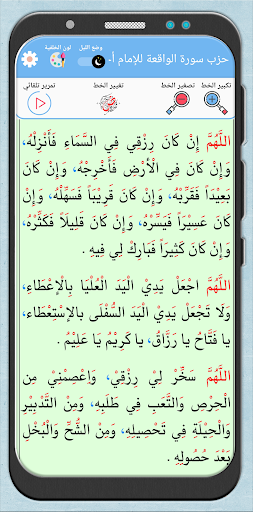 حزب سورة الواقعة للإمام أ-
وضع الليل
لون الخلفية
تكبير الخط
تصغير الخط
تغيير الخط
تمرير تلقائي
اللَّهُمَّ إِنْ كَانَ رِزْقِي فِي السَّمَاءِ فَأَنْزِلْهُ،
وَإِنْ كَانَ فِي الْأَرْضِ فَأَخْرِجْهُ، وَإِنْ كَانَ
بَعِيْدَاً فَقَرِّبْهُ، وَإِنْ كَانَ قَرِيْبَاً فَسَهِّلْهُ، وَإِنْ
كَانَ عَسِيْرَاً فَيَسِّرْهُ، وَإِنْ كَانَ قَلِيلَاً فَكَثِّرْهُ،
وَإِنْ كَانَ كَثِيْرَاً فَبَارِكْ لِي فِيهِ .
اللَّهُمَّ اجْعَلْ يَدِيْ الْيَدَ الْعُلْيَا بِالْإِعْطَاءِ،
وَلَا تَجْعَلْ يَدِيْ الْيَدَ السُّفْلَى بِالْإِسْتِعْطَاءِ،
يا فَتَّاحُ يا رَزَّاقُ، يا كَرِيْمُ يَا عَلِيْمُ .
اللَّهُمَّ سَخِّرْ لِي رِزْقِيْ، وَاعْصِمْنِيْ مِنَ
الْحِرْصِ وَالتَّعَبِ فِي طَلَبِهِ، وَمِنَ التَّدْبِيْرِ
وَالْحِيْلَةِ فِي تَحْصِيلِهِ، وَمِنَ الشُّحِّ وَالْبُخْلِ
بَعْدَ حُصُولِهِ .